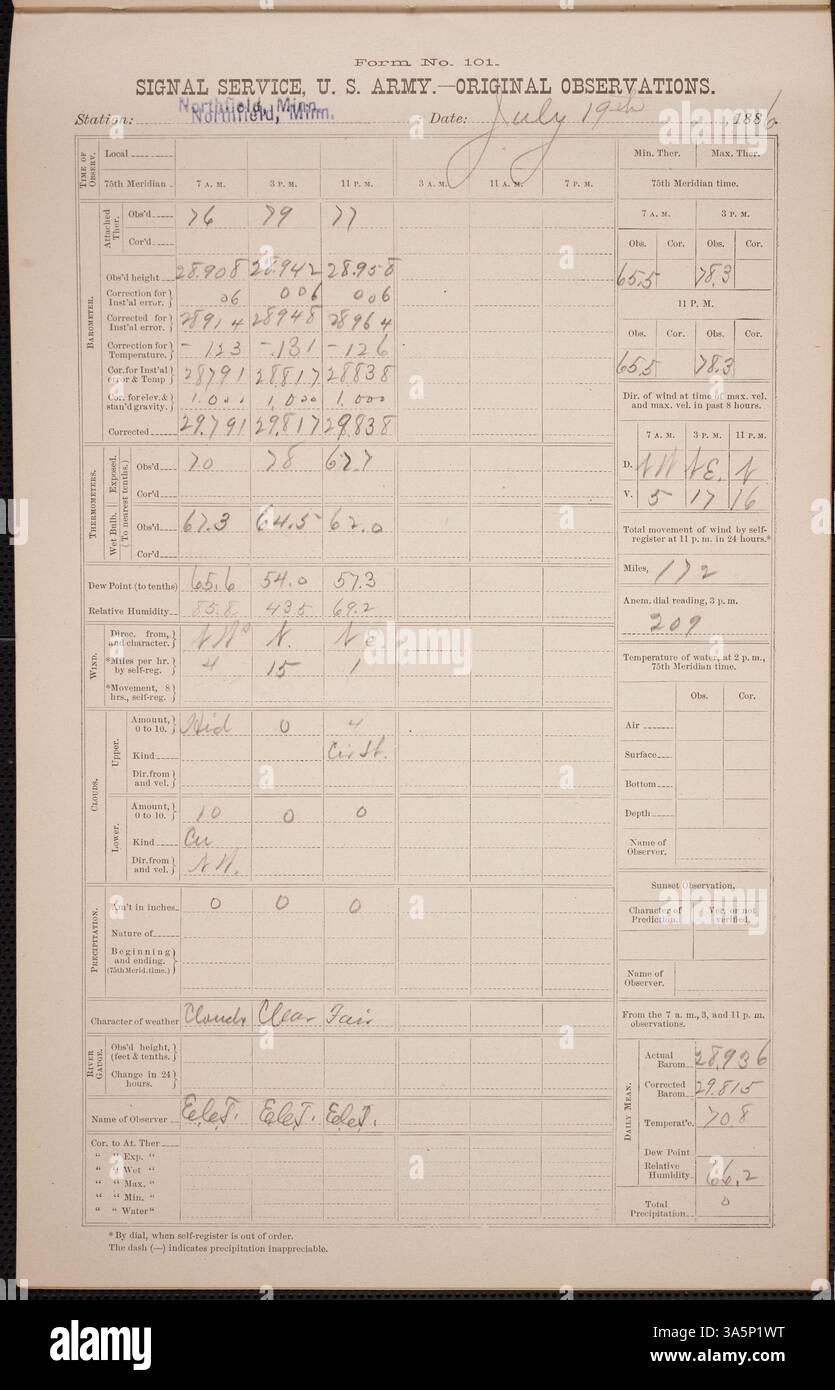 Form No. 101.
SIGNAL SERVICE, U. S. ARMY.—ORIGINAL OBSERVATIONS.
Station: Northfield, Minn. Northfield, Minn. Date: July 19th, 1886
TIME OF OBSERV. Local
75th Meridian 7 A. M. 3 P. M. 11 P. M. 3 A. M. 11 A. M. 7 P. M.
BAROMETER.
Attached Ther. Obs'd 76 79 77
Cor'd
Obs'd height 28.908 28.942 28.958
Correction for Inst'al error. 06 006 006
Corrected for Inst'al error. 28914 28948 28964
Correction for Temperature. -123 -.131 -126
Cor. for Inst'al error & Temp 28791 28817 28838
Cor. for elev. & stan'd gravity. 1.000 1,000 1.000
Corrected 29.791 29.817 29.838
THERMOMETERS. (To nearest tenths.)
Exposed. Obs'd 70 78 67.7
Cor'd
Wet Bulb. Obs'd 67.3 64.5 62.0
Cor'd
Dew Point (to tenths) 65.6 54.0 57.3
Relative Humidity 85.8 43.5 69.2
WIND.
Direc. from, and character. N W N. N E
*Miles per hr. by self-reg. 4 15 1
*Movement, 8 hrs., self-reg.
CLOUDS.
Upper. Amount, 0 to 10. Hid 0 4
Kind Cir St.
Dir. from and vel.
Lower. Amount, 0 to 10. 10 0 0
Kind Cu
Dir. from and vel. N W.
PRECIPITATION.
Am't in inches 0 0 0
Nature of
Beginning and ending. (75th Merid. time.)
Character of weather Cloudy Clear Fair
RIVER GAUGE.
Obs'd height, (feet & tenths.
Change in 24 hours.
Name of Observer
Cor. to At. Ther
" " Exp. "
" " Wet "
" " Max. "
" " Min. "
" " Water "
Min. Ther. Max. Ther.
75th Meridian time.
7 A. M. 3 P. M.
Obs. Cor. Obs. Cor.
65.5 78.3
11 P. M.
Obs. Cor. Obs. Cor.
65.5 78.3
Dir. of wind at time of max. vel. and max. vel. in past 8 hours.
7 A. M. 3 P. M. 11 P. M.
D. N W N E. N
V. 5 17 16
Total movement of wind by self-register at 11 p. m. in 24 hours.*
Miles, 172
Anem. dial reading, 3 p. m.
209
Temperature of water, at 2 p. m., 75th Meridian time.
Obs. Cor.
Air
Surface
Bottom
Depth
Name of Observer.
Sunset Observation.
Character of Prediction. Ver. or not verified.
Name of Observer.
From the 7 a. m., 3, and 11 p. m. observations.
DAILY MEAN.
Actual Barom 28.936
Corrected Barom 29.815
Temperat'e. 70 8
Dew Point
Relative Humidity 66.2
Total Precipitation 0
* By dial, when self-register is out of order.
The dash (—) indicates precipitation inappreciable.
alamy
Image ID: 3A5P1WT
www.alamy.com